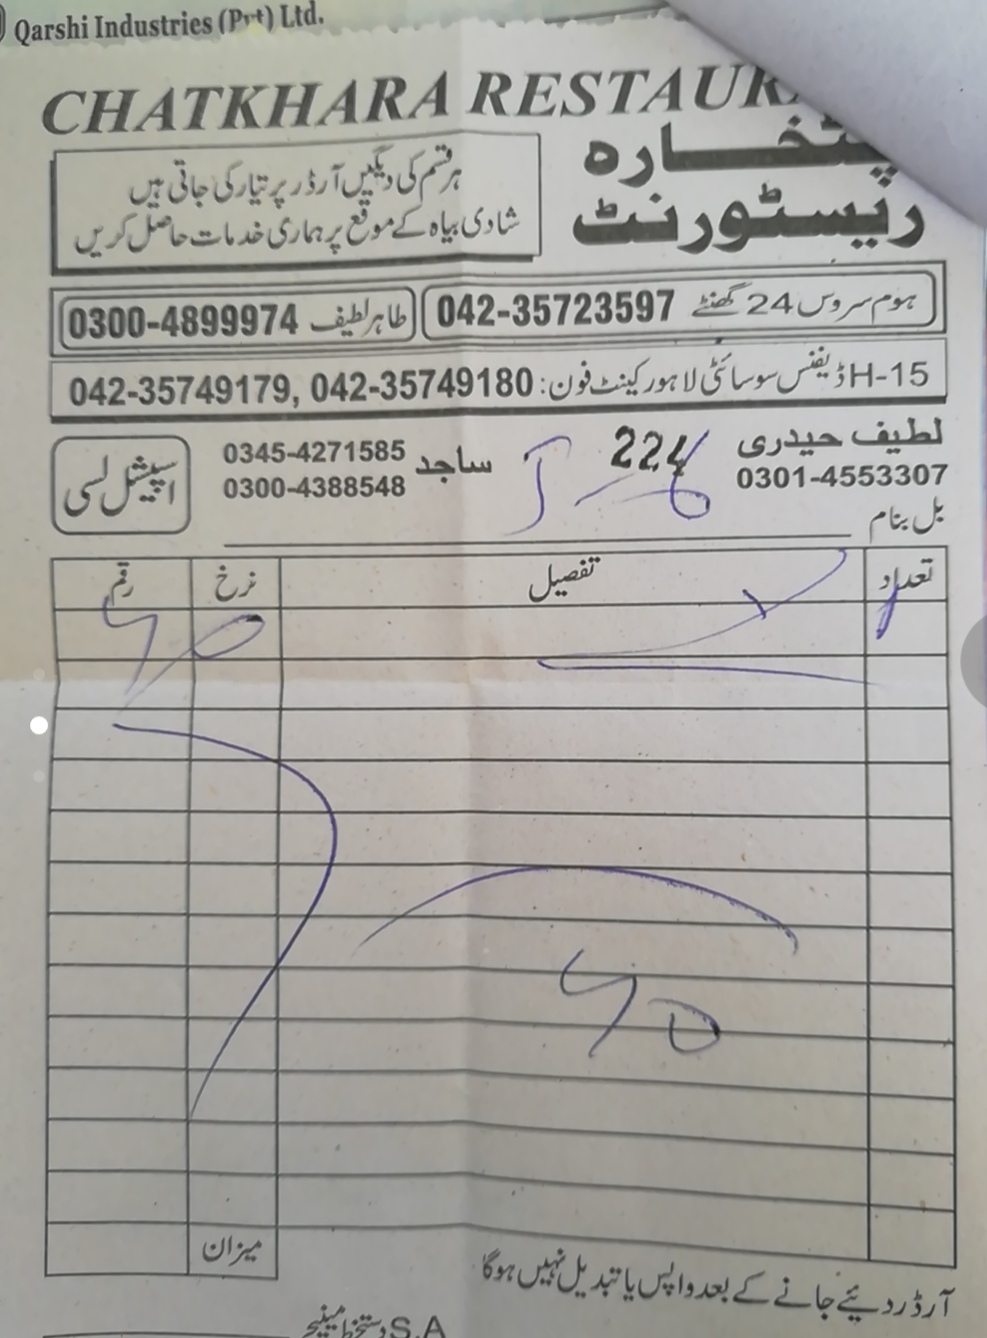 Qarshi Industries (Pvt) Ltd.
CHATKHARA
ریسٹورنٹ
ہر قسم کی دیگیں آرڈر پر تیار کی جاتی ہیں
شادی بیاہ کے موقع پر ہماری خدمات حاصل کریں
ہوم سروس 24 گھنٹے 042-35723597
طاہر لطیف 0300-4899974
H-15 ڈیفنس سوسائٹی لاہور کینٹ فون: 042-35749179, 042-35749180
لطیف حیدری
0301-4553307
224
ساجد 0345-4271585
0300-4388548
اسپیشل لسی
بل بنام
تعداد تفصیل نرخ رقم
میزان
آرڈر دیئے جانے کے بعد واپس یا تبدیل نہیں ہوگا
S.A دستخط مینیجر